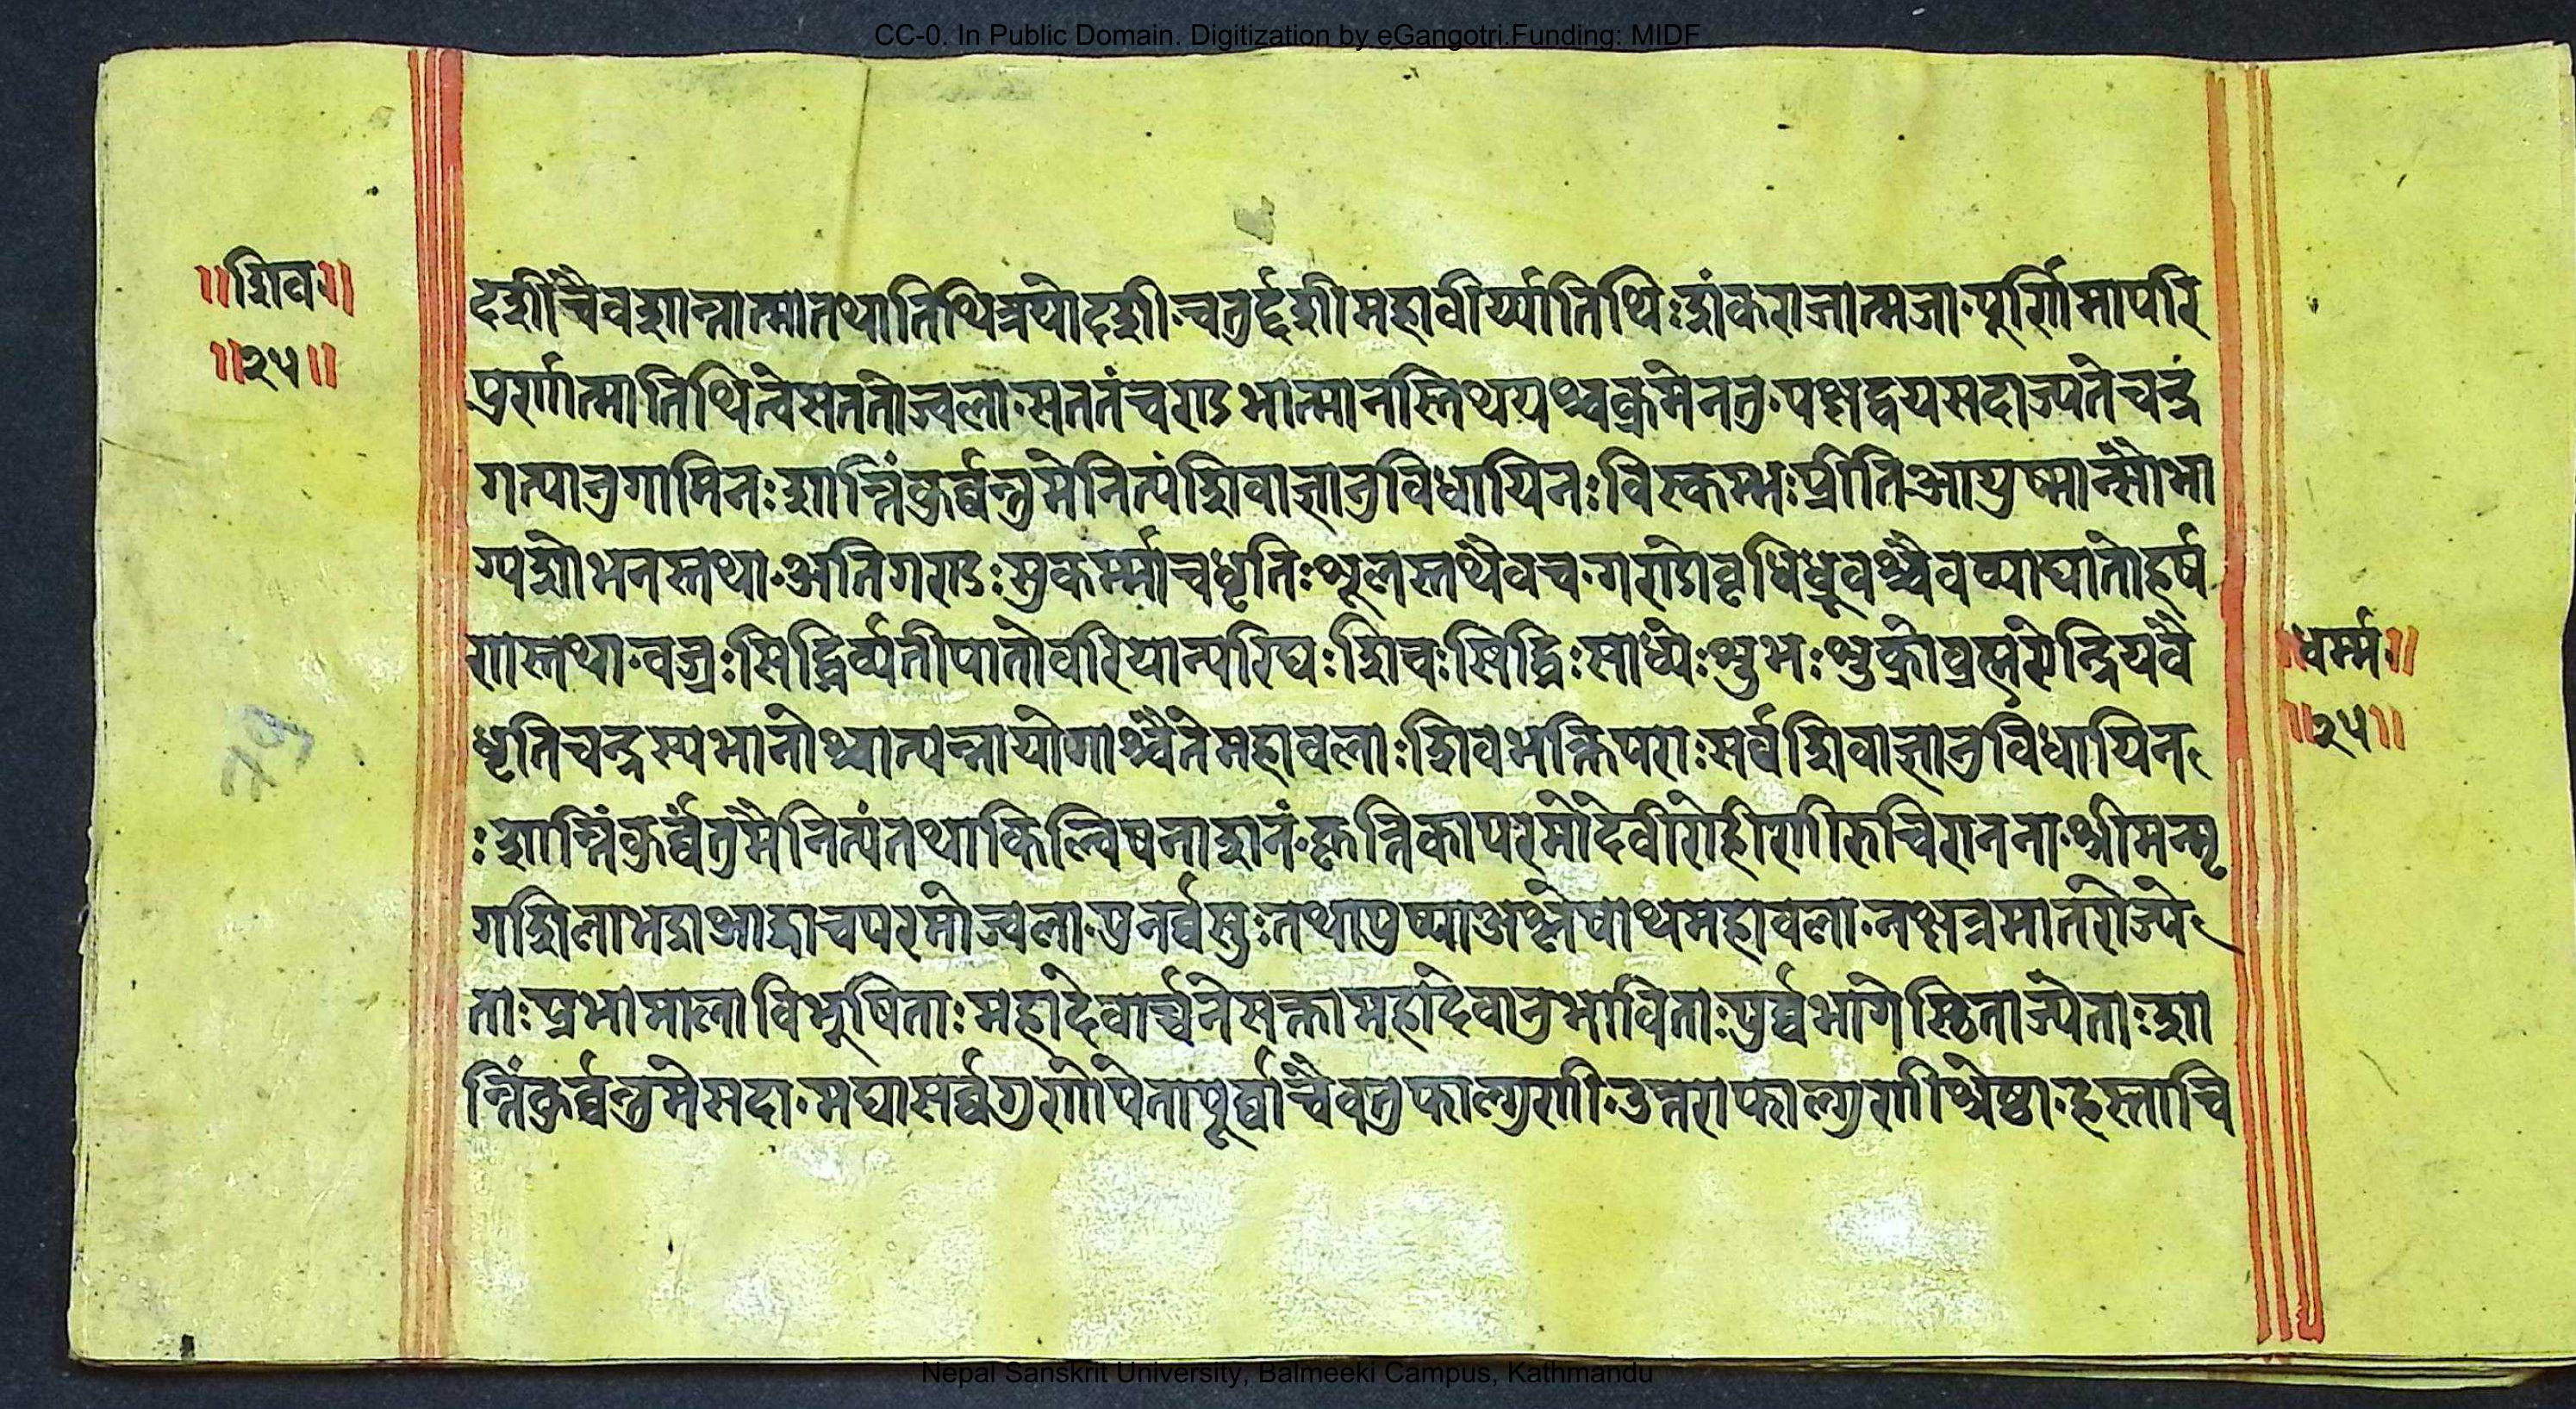 CC-0. In Public Domain. Digitization by eGangotri.Funding: MIDF
॥शिव॥
॥२५॥
दशींचैवशान्तात्मातथातिथित्रयोदशी·चतुर्द्दशीमहावीर्य्यातिथिःशंकराजात्मजा·पूर्णिमापरि
पूर्णात्मातिथित्वेसततोज्वला·सततंचण्डभात्मानस्तिथयश्चक्रमेनतु·पक्षद्वयसदाज्यतेचन्द्रं
गत्यानुगामिनःशान्तिंकुर्व्वन्तुमेनित्यंशिवाज्ञानुविधायिनःविस्कम्भःप्रीतिआयुष्मान्सौभा
ग्यशोभनस्तथा·अतिगण्डःसुकर्म्माचधृतिःशूलस्तथैवच·गण्डोवृधिध्रुवश्चैवव्याघातोहर्ष
णास्तथा·वज्रःसिद्धिर्व्यतीपातोवरियान्परिघःशिवःसिद्धिःसाध्यंःशुभःशुक्रोव्रह्मंरेन्द्रियवै
धृतिचन्द्रस्यभानोश्चात्पन्नायोगाश्चैतेमहावलाःशिवभक्तिपराःसर्वशिवाज्ञानुविधायिन
ःशान्तिंकुर्व्वंतुमेनित्यंतथाकिल्विषनाशनं·कृत्तिकापरमोदेवीरोहीणीरुचिरानना·श्रीमन्मृ
गशिलाभद्राआर्द्राचपरमोज्वला·पुनर्व्वसुःतथापुष्याअश्लेषाथमहावला·नक्षत्रमातरोज्ये
ताःप्रभामालाविभूषिताःमहादेवार्च्चनेसक्तामहादेवानुभाविताःपूर्व्वभागेस्थिताज्येताःशा
न्तिंकुर्व्वन्तुमेसदा·मघासर्व्वगुणोपेतापूर्व्वाचैवतुफाल्गुणी·उत्तराफाल्गुणीश्रेष्ठा·हस्ताचि
॥धर्म्म॥
॥२५॥
79
Nepal Sanskrit University, Balmeeki Campus, Kathmandu